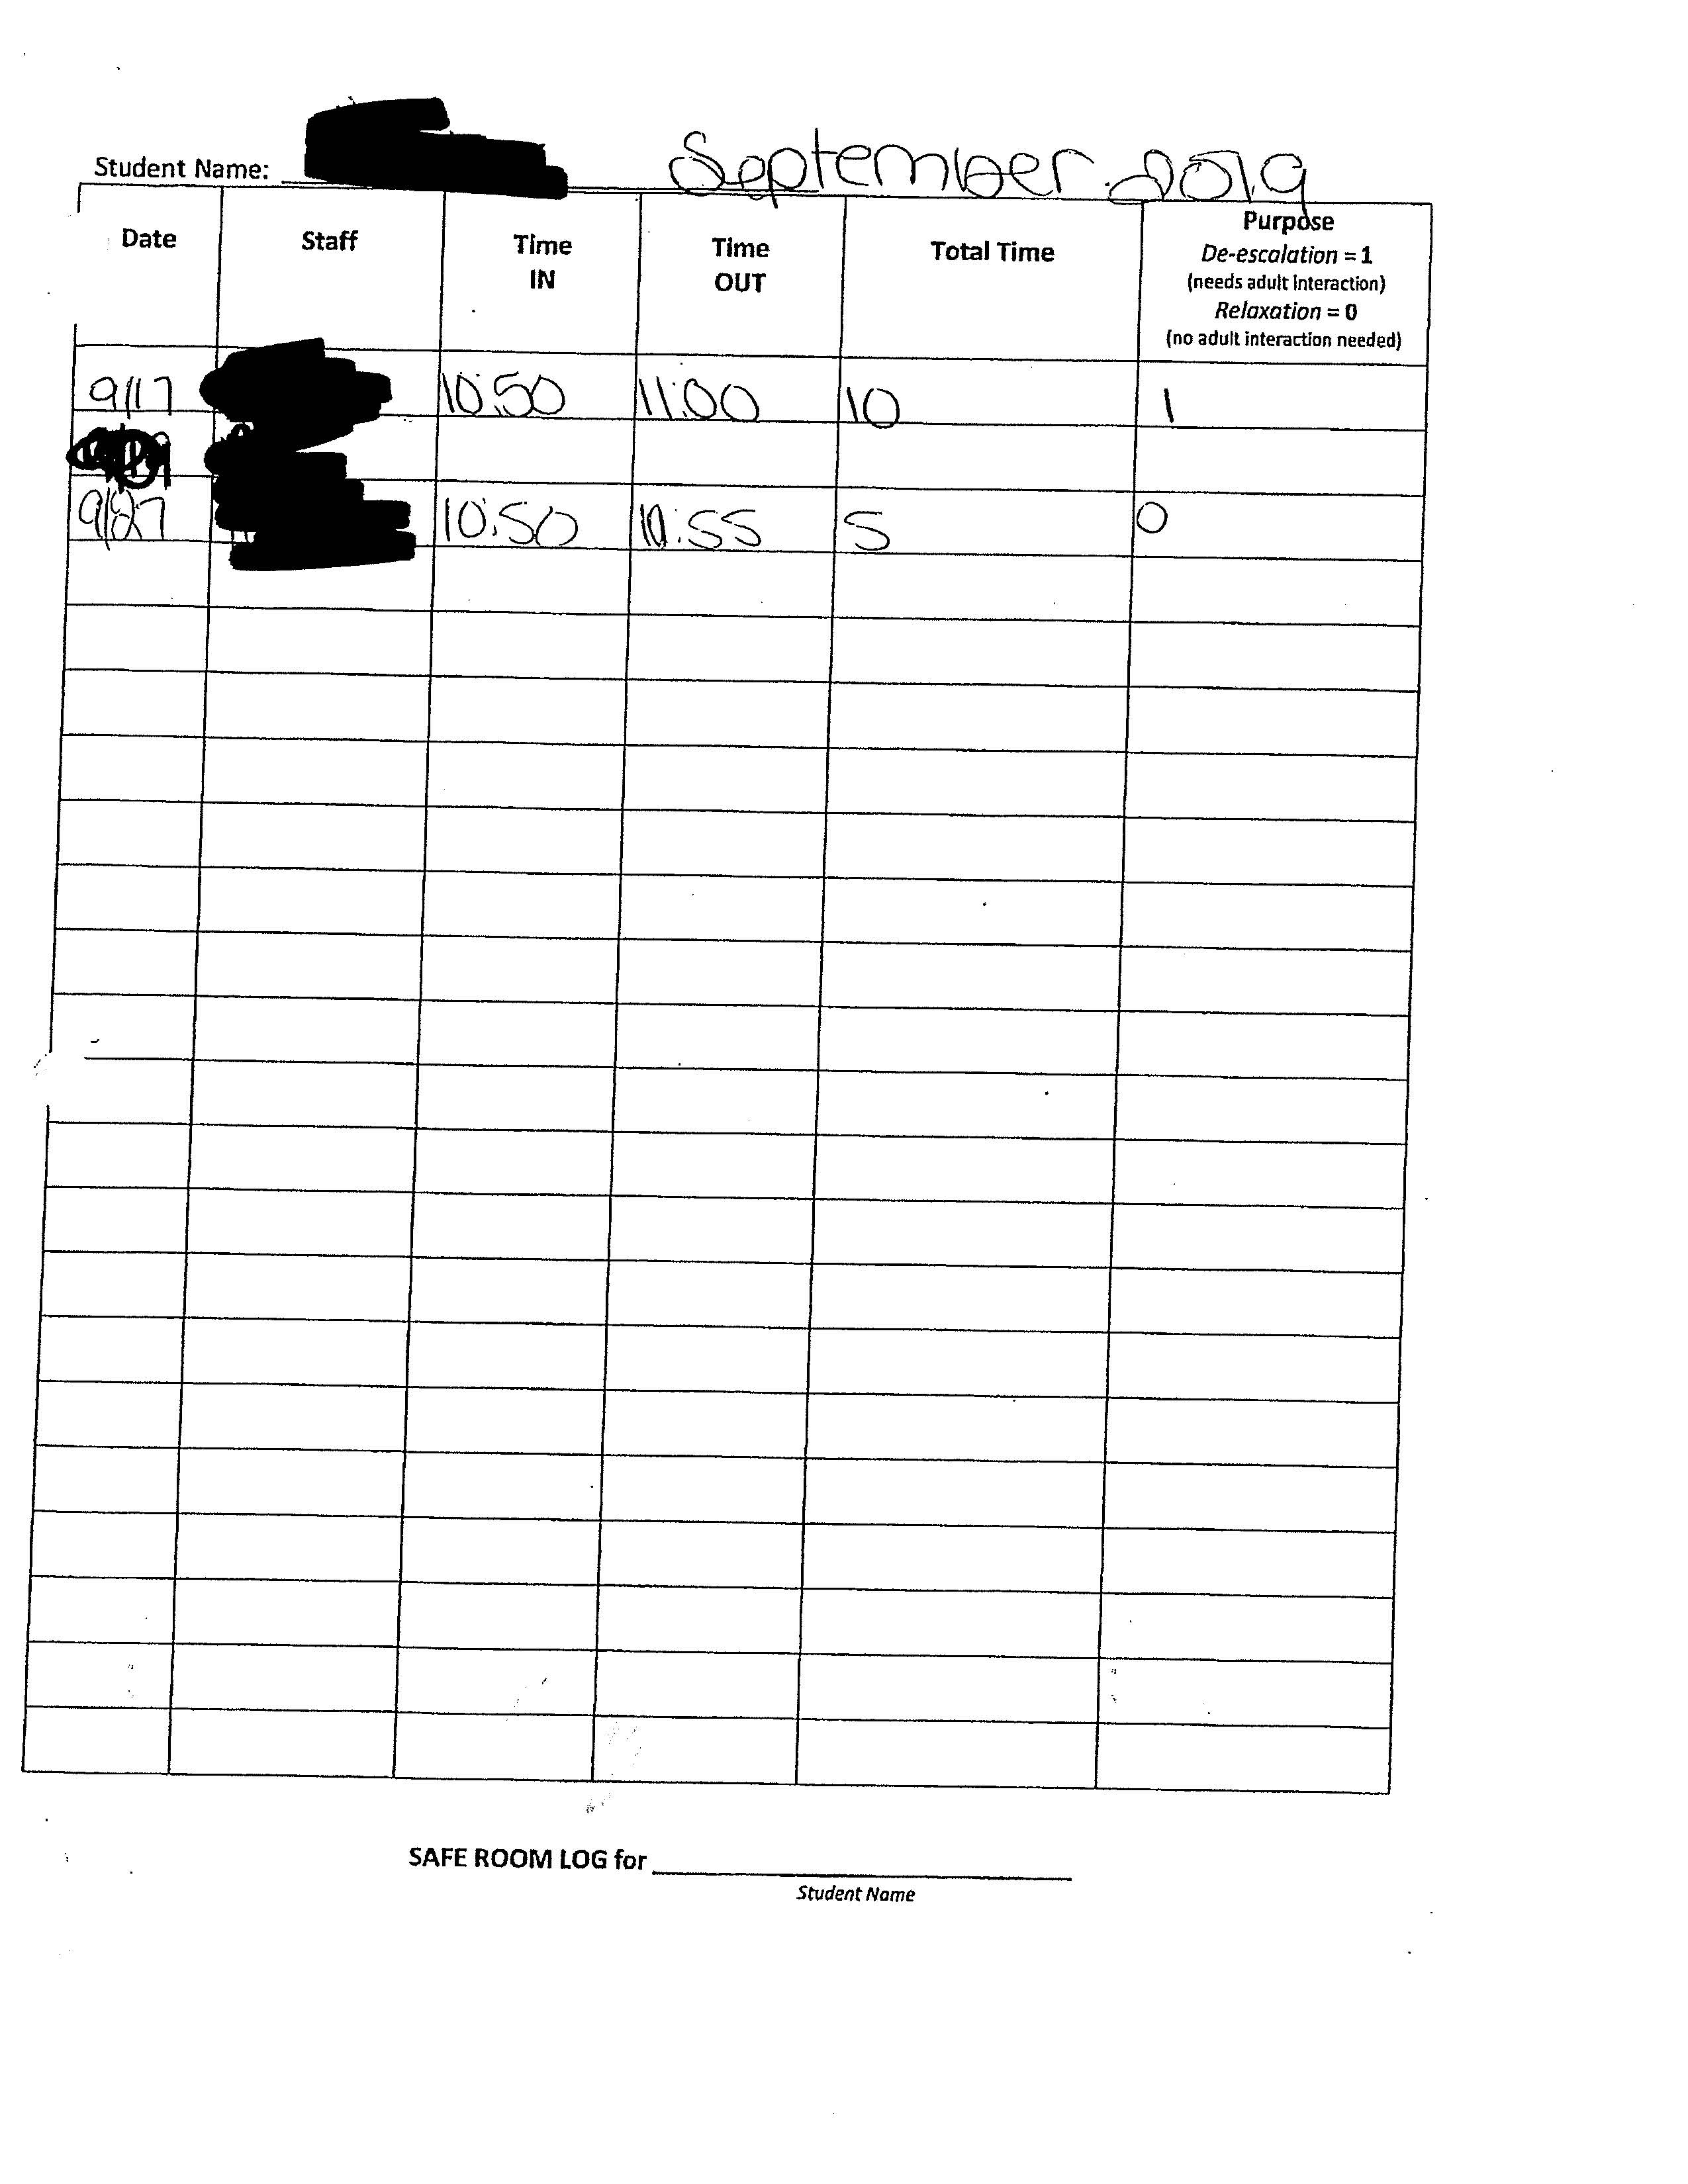 Student Name: September 2019
Date Staff Time IN Time OUT Total Time Purpose
De-escalation = 1
(needs adult interaction)
Relaxation = 0
(no adult interaction needed)
9/17 10:50 11:00 10 1
9/27 10:50 10:55 5 0
SAFE ROOM LOG for
Student Name